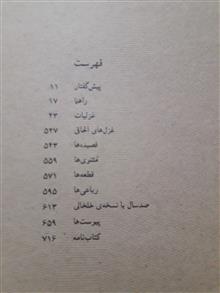 فهرست
پیش‌گفتار ۱۱
راهنما ۱۷
غزلیات ۴۳
غزل‌های الحاقی ۵۲۷
قصیده‌ها ۵۴۳
مثنوی‌ها ۵۵۹
قطعه‌ها ۵۷۱
رباعی‌ها ۵۹۵
صدسال با نسخه‌ی خلخالی ۶۱۳
پیوست‌ها ۶۵۹
کتاب‌نامه ۷۱۶